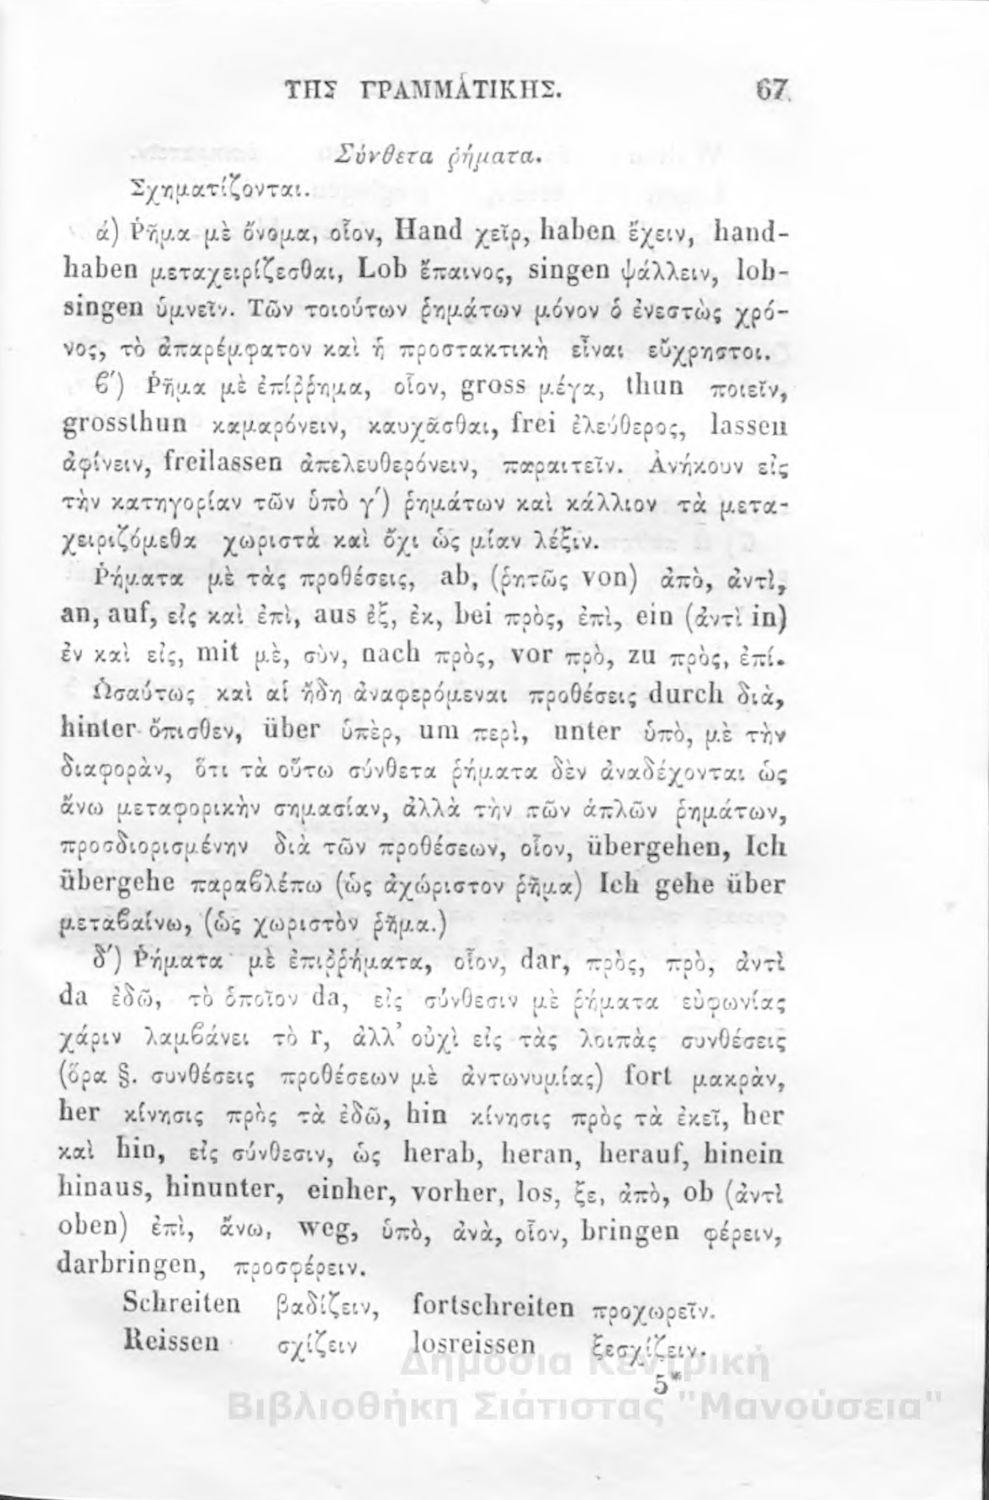 ΤΗΣ ΓΡΑΜΜΑΤΙΚΗΣ. 67
Σύνθετα ῥήματα.
Σχηματίζονται.
ά) Ῥῆμα μὲ ὄνομα, οἷον, Hand χεῖρ, haben ἔχειν, hand-
haben μεταχειρίζεσθαι, Lob ἔπαινος, singen ψάλλειν, lob-
singen ὑμνεῖν. Τῶν τοιούτων ῥημάτων μόνον ὁ ἐνεστὼς χρό-
νος, τὸ ἀπαρέμφατον καὶ ἡ προστακτικὴ εἶναι εὔχρηστοι.
ϐ′) Ῥῆμα μὲ ἐπίῤῥημα, οἷον, gross μέγα, thun ποιεῖν,
grossthun καμαρόνειν, καυχᾶσθαι, frei ἐλεύθερος, lassen
ἀφίνειν, freilassen ἀπελευθερόνειν, παραιτεῖν. Ἀνήκουν εἰς
τὴν κατηγορίαν τῶν ὑπὸ γ′) ῥημάτων καὶ κάλλιον τὰ μετα-
χειριζόμεθα χωριστὰ καὶ ὄχι ὡς μίαν λέξιν.
Ῥήματα μὲ τὰς προθέσεις, ab, (ῥητῶς von) ἀπὸ, ἀντὶ,
an, auf, εἰς καὶ ἐπὶ, aus ἐξ, ἐκ, bei πρὸς, ἐπὶ, ein (ἀντὶ in)
ἐν καὶ εἰς, mit μὲ, σὺν, nach πρὸς, vor πρὸ, zu πρὸς, ἐπί.
Ὡσαύτως καὶ αἱ ἤδη ἀναφερόμεναι προθέσεις durch διὰ,
hinter ὄπισθεν, über ὑπὲρ, um περὶ, unter ὑπὸ, μὲ τὴν
διαφορὰν, ὅτι τὰ οὕτω σύνθετα ῥήματα δὲν ἀναδέχονται ὡς
ἄνω μεταφορικὴν σημασίαν, ἀλλὰ τὴν τῶν ἁπλῶν ῥημάτων,
προσδιορισμένην διὰ τῶν προθέσεων, οἷον, übergehen, Ich
übergehe παραϐλέπω (ὡς ἀχώριστον ῥῆμα) Ich gehe über
μεταϐαίνω, (ὡς χωριστὸν ῥῆμα.)
δ′) Ῥήματα μὲ ἐπιῤῥήματα, οἷον, dar, πρὸς, πρὸ, ἀντὶ
da ἐδῶ, τὸ ὁποῖον da, εἰς σύνθεσιν μὲ ῥήματα εὐφωνίας
χάριν λαμϐάνει τὸ r, ἀλλ' οὐχὶ εἰς τὰς λοιπὰς συνθέσεις
(ὅρα §. συνθέσεις προθέσεων μὲ ἀντωνυμίας) fort μακρὰν,
her κίνησις πρὸς τὰ ἐδῶ, hin κίνησις πρὸς τὰ ἐκεῖ, her
καὶ hin, εἰς σύνθεσιν, ὡς herab, heran, herauf, hinein
hinaus, hinunter, einher, vorher, los, ξε, ἀπὸ, ob (ἀντὶ
oben) ἐπὶ, ἄνω, weg, ὑπὸ, ἀνὰ, οἷον, bringen φέρειν,
darbringen, προσφέρειν.
Schreiten βαδίζειν, fortschreiten προχωρεῖν.
Reissen σχίζειν losreissen ξεσχίζειν.
5*
Δημόσια Κεντρική
Βιβλιοθήκη Σιάτιστας "Μανούσεια"